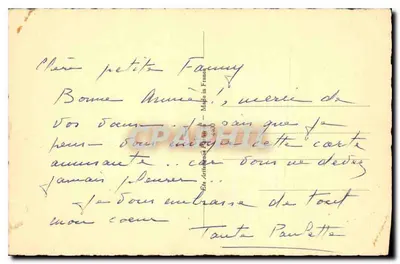 Chère petite Fanny
Bonne Année!, merci de
vos vœux... Je sais que je
peux vous envoyer cette carte
amusante... car vous ne devez
jamais pleurer...
Je vous embrasse de tout
mon cœur
Tante Paulette
Made in France